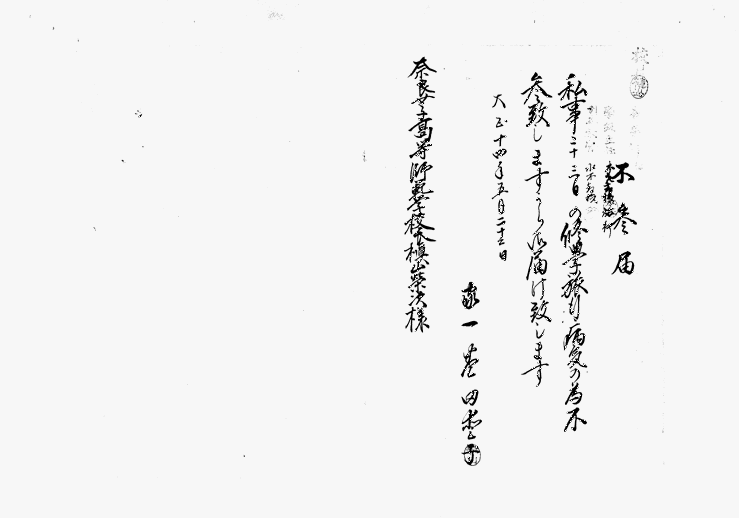 不参届
私事二十三日の修學旅行病気の為不
参致しますから御届け致します
大正十四年五月二十二日
家一 田
奈良女子高等師範學校長槇山榮次様